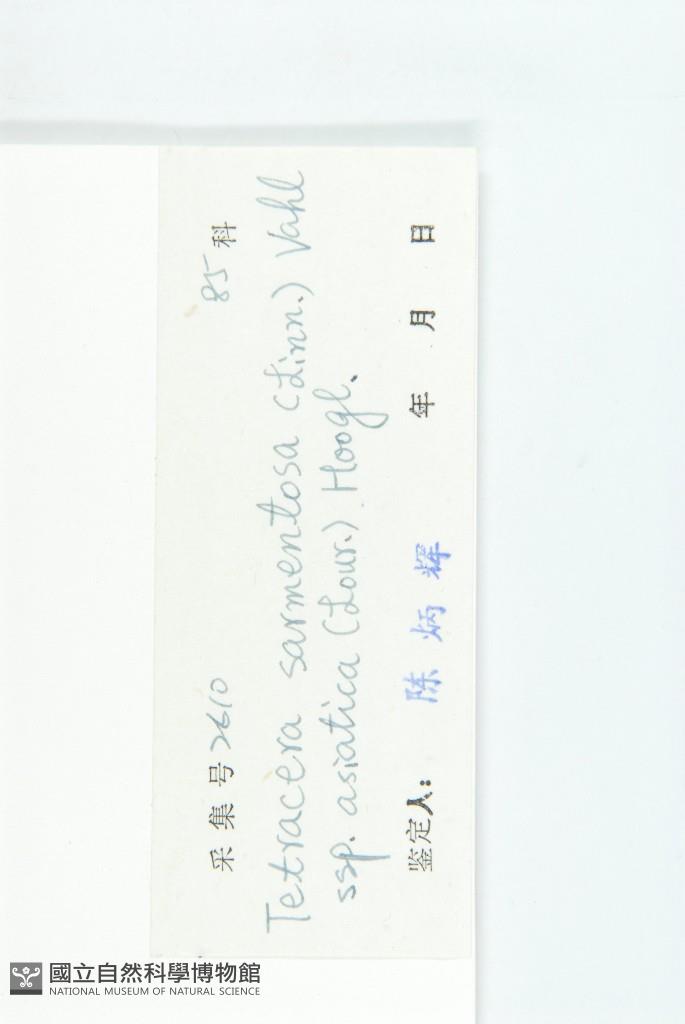 采集号 2610 85 科
Tetracera sarmentosa (Linn.) Vahl
ssp. asiatica (Lour.) Hoogl.
鉴定人： 陈炳辉 年 月 日
國立自然科學博物館
NATIONAL MUSEUM OF NATURAL SCIENCE